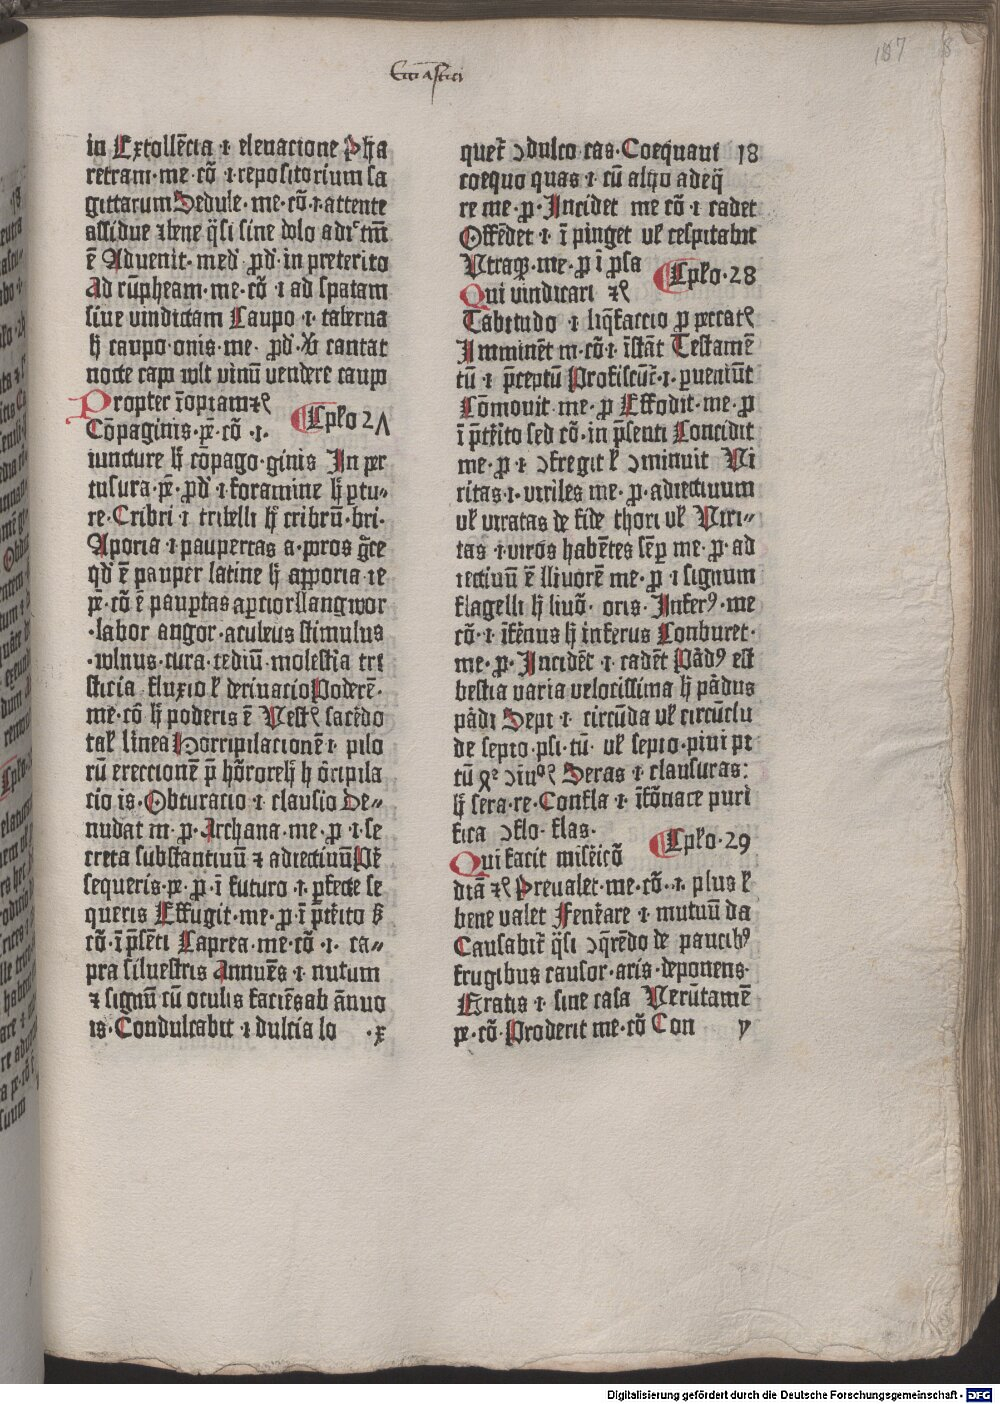 187
Ecciastici
in Extollēcia ı elevacione Pha
retram·me·cō·ı repositorium sa
gittarum Sedule·me·cō·ı·attente
assidue ⁊bene q̄si sine dolo ad
ē Advenit·med p̱d·in preterito
Ad rūpheam·me·cō·ı ad spatam
sive vindictam Caupo·ı·taberna
h̵ caupo·onis·me· p̱d· cantat
nocte capo wlt vinū vendere caupo
Propter īopiam⁊ꝭ
Cpło 2Λ
Cōpaginis·p̄·cō·ı·
iuncture h̵ cōpago·ginis In per
tusura·p̄·p̱d·ı·foramine h̵ p̱tu„
re·Cribri·ı tribelli h̵ cribrū·bri·
Aporia·ı paupertas a·poros g̅ce
qd̵ ē pauper latine h̵ apporia·ie
p̄·cō·ē paup̱tas ap̱cior
·labor angor·aculeus stimulus
·wlnus·cura·tediū·molestia tri
sticia fluxio ł derivacio Poderē·
me·cō h̵ poderis ē Vestꝭ sacēdo
tał linea Horripilacionē·ı·pilo
rū ereccionē p̄ hōrorē h̵ ōripila
cio is·Obturacio·ı clausio De„
nudat m·p̱·Archana·me·p̱·ı·se
creta substantivū ⁊ adiectivū
sequeris·p̱e·p̱·ī futuro·ı·p̱fecte se
queris Effugit·me·p̱·ī p̄t̄ito
cō·ī p̄sēti Caprea·me·cō·ı·ca„
pra silvestris Annuēs·ı·nutum
⁊ signū cū oculis faciēs ab ānuo
is·Condulcabit·ı dulcia lo ·x
quet̄ ↄdulco·cas·Coequavi 18
coequo quas·ı cū aliquo
re me·p̱·Incidet me cō·ı cadet
Offēdet·ı·ī pinget vł cespitabit
Utraqꝫ·me·p̱ ī p̱sa
Cpło·28
Qui vindicari ⁊ꝭ
Tabitudo·ı liq̄faccio p̱ peccatꝭ
Imminēt m·cō·ı·īstāt Testamē
tū·ı p̄ceptū Proficiscūt̄·ı·p̱veniūt
Cōmovit·me·p̱ Effodit·me·p̱
ī p̄t̄ito sed cō·in p̄senti Concidit
me·p̱·ı ↄfregit ł ↄminuit Vi
ritas·ı·viriles me·p̱·adiectivum
vł viratas de fide thori vł Viri„
tas·ı viros habētes sēp̱ me·p̱·ad
iectivū ē llivorē me·p̱·ı signum
flagelli h̵ livō·oris·Inferꝰ·me
cō·ı·īfēnus h̵ inferus Conburet·
me·p̱·Incidēt·ı cadēt Pādꝰ est
bestia varia velocissima h̵ pādus
pādi Sepi·ı circūda vł circūclu
de sepio·psi·tū·vł sepio·pivi pi
tū Seras·ı clausuras:
h̵ sera·re·Confla·ı·īfōnace puri
fica ↄflo·flas·
Cpło·29
Qui facit misēicō
diā ⁊ꝭ Prevalet·me·cō·ı·plus ł
bene valet Fenērare·ı·mutuū da
Causabit̄ q̄si ↄq̄rēdo de paucibꝰ
frugibus causor·aris·deponens·
Eratis·ı·sine casa Verūtamē
p̱e·cō·Proderit me·cō Con y
Digitalisierung gefördert durch die Deutsche Forschungsgemeinschaft - DFG